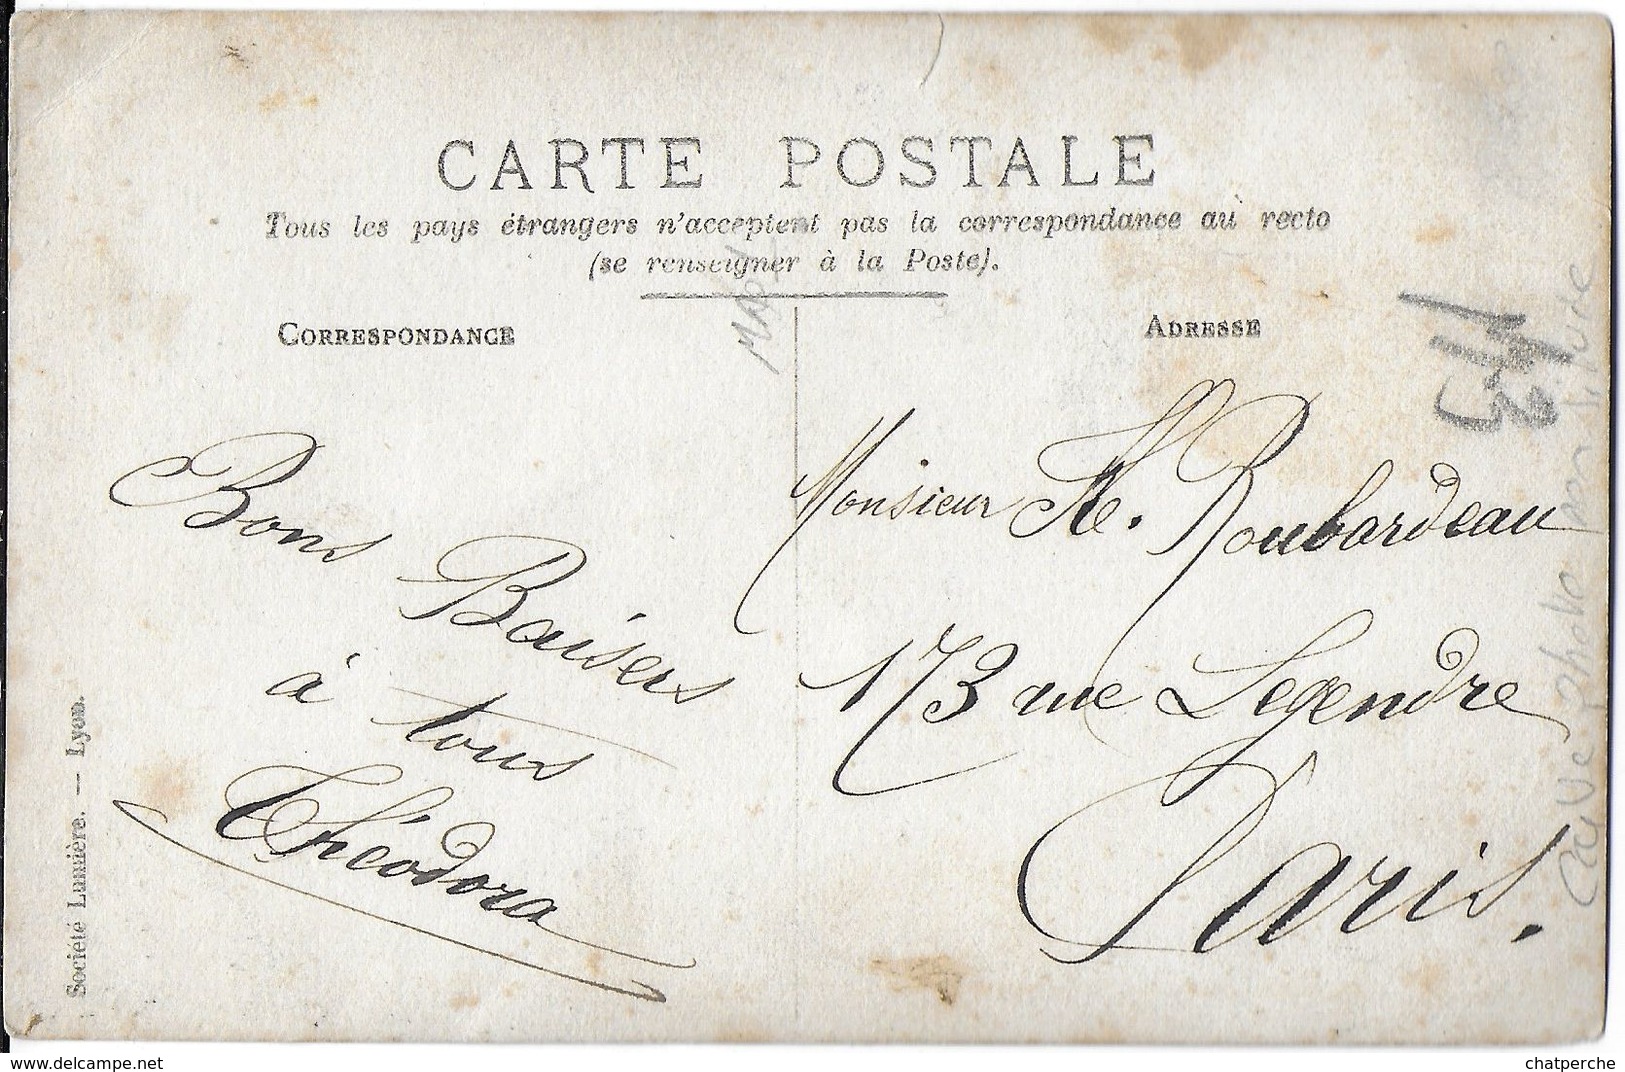 CARTE POSTALE
Tous les pays étrangers n'acceptent pas la correspondance au recto
(se renseigner à la Poste).
CORRESPONDANCE
ADRESSE
Bons Baisers
à tous
Théodora
Monsieur H. Roubardeau
173 rue Legendre
Paris.
Société Lumière. — Lyon.
carte photo
chatperche